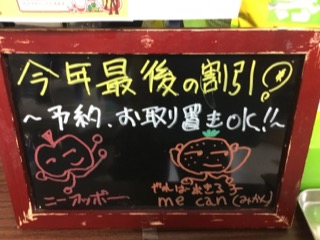 今年最後の割引!
～予約、お取り置きOK!!～
ニーアッポー
やれば出きる子
me can(みかん)